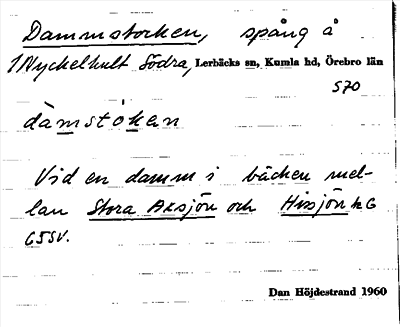 Dammstocken, spång å
1 Nyckelhult Södra, Lerbäcks sn, Kumla hd, Örebro län
570
dàmstóken
Vid en damm i bäcken mel-
lan Stora Axsjön och Hissjön k G
G5SV.
Dan Höjdestrand 1960